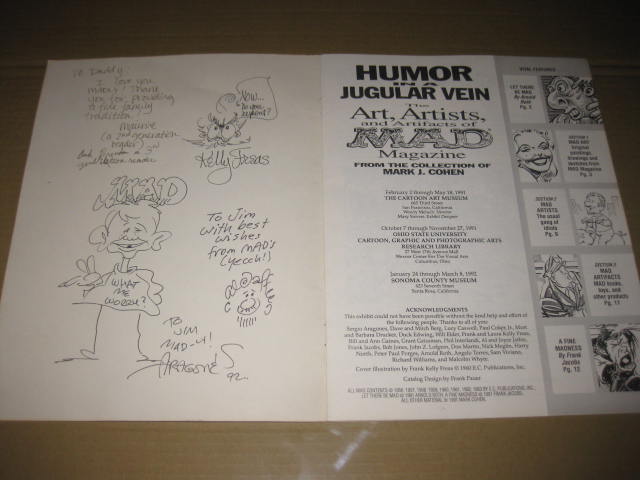 To Daddy:
I love you
many! Thank
you for providing
a fine family
tradition.
(a 2nd generation
reader)
and a 3rd
generation reader
Now...
Do you
repent?
Kelly Freas
MAD
WHAT
ME
WORRY?
To Jim
with best
wishes
from MAD's
(yecch!)
To
Jim
MAD-ly
ARAGONES
92
HUMOR
IN A
JUGULAR VEIN
The
Art, Artists,
and Artifacts of
MAD
Magazine
FROM THE COLLECTION OF
MARK J. COHEN
February 2 through May 18, 1991
THE CARTOON ART MUSEUM
665 Third Street
San Francisco, California
October 7 through November 27, 1991
OHIO STATE UNIVERSITY
CARTOON, GRAPHIC AND PHOTOGRAPHIC ARTS
RESEARCH LIBRARY
27 West 17th Avenue Mall
Wexner Center For The Visual Arts
Columbus, Ohio
January 24 through March 8, 1992
SONOMA COUNTY MUSEUM
425 Seventh Street
Santa Rosa, California
ACKNOWLEDGMENTS
This exhibit could not have been possible without the kind help and effort of
the following people. Thanks to all of you:
Sergio Aragones, Dave and Mitch Berg, Lucy Caswell, Paul Coker, Jr., Mort
and Barbara Drucker, Duck Edwing, Will Elder, Frank and Laura Kelly Freas,
Bill and Ann Gaines, Grant Geissman, Phil Interlandi, Al and Joyce Jaffee,
Frank Jacobs, Bob Jones, John Z. Lofgren, Don Martin, Nick Meglin, Harry
North, Peter Paul Porges, Arnold Roth, Angelo Torres, Sam Viviano,
Richard Williams, and Malcolm Whyte.
Cover illustration by Frank Kelly Freas © 1960 E.C. Publications, Inc.
Catalog Design by Frank Pauer
VITAL FEATURES
LET THERE
BE MAD
By Arnold
Roth
Pg. 2
SECTION 1
MAD ART
Original
paintings,
drawings and
sketches from
MAD Magazine
Pg. 3
SECTION 2
MAD
ARTISTS
The usual
gang of
idiots
Pg. 8
SECTION 3
MAD
ARTIFACTS
MAD books,
toys, and
other products
Pg. 11
A FINE
MADNESS
By Frank
Jacobs
Pg. 12